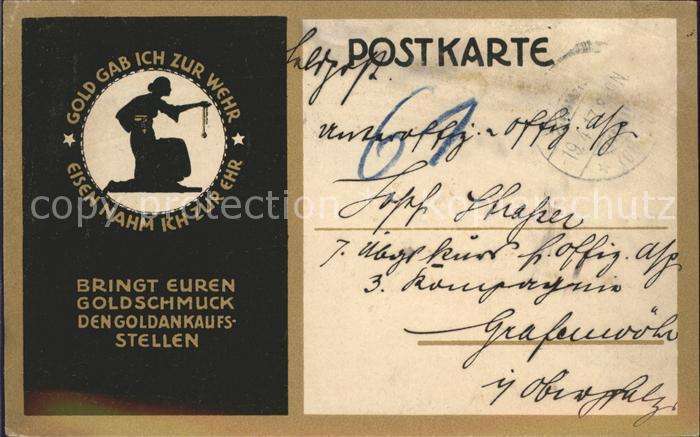 GOLD GAB ICH ZUR WEHR
EISEN NAHM ICH ZUR EHR
BRINGT EUREN
GOLDSCHMUCK
DEN GOLDANKAUFS-
STELLEN
POSTKARTE
Feldpost.
61
Unteroffiz. Offiz. Asp.
Josef Straßer
7. Übgs Kurs f. Offiz. Asp
3. Kompagnie
Grafenwöhr
i/ Oberpfalz.
copy protection